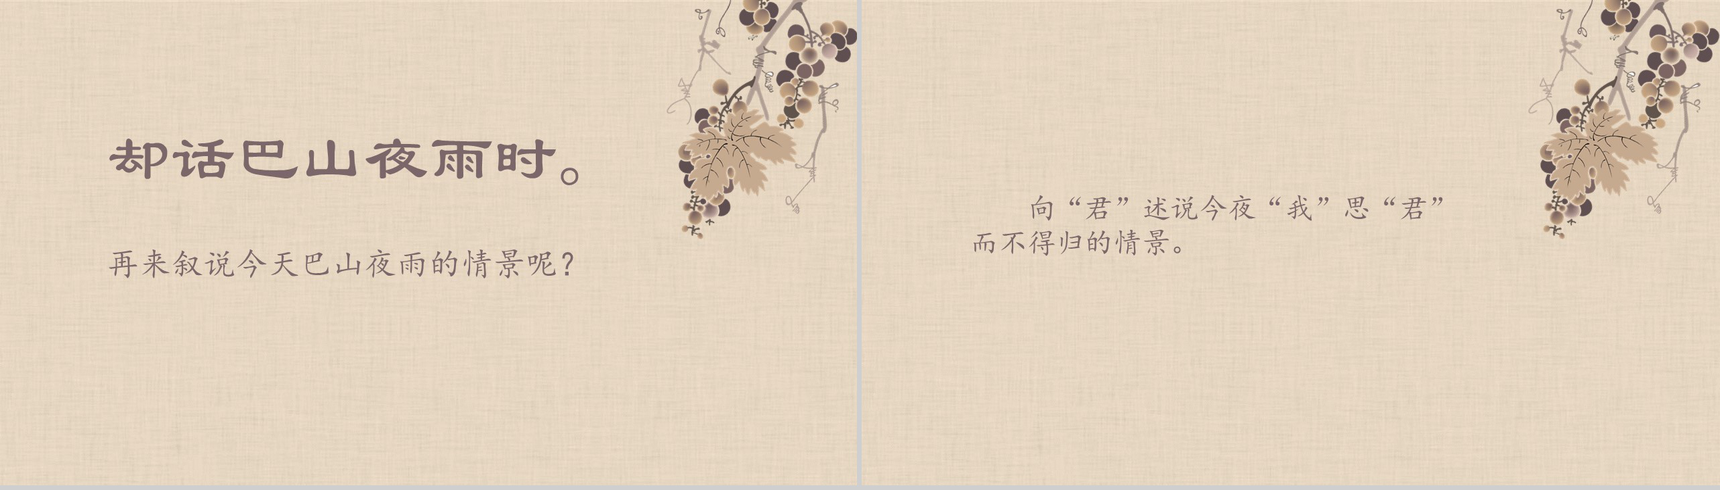 却话巴山夜雨时。
再来叙说今天巴山夜雨的情景呢？
向“君”述说今夜“我”思“君”
而不得归的情景。